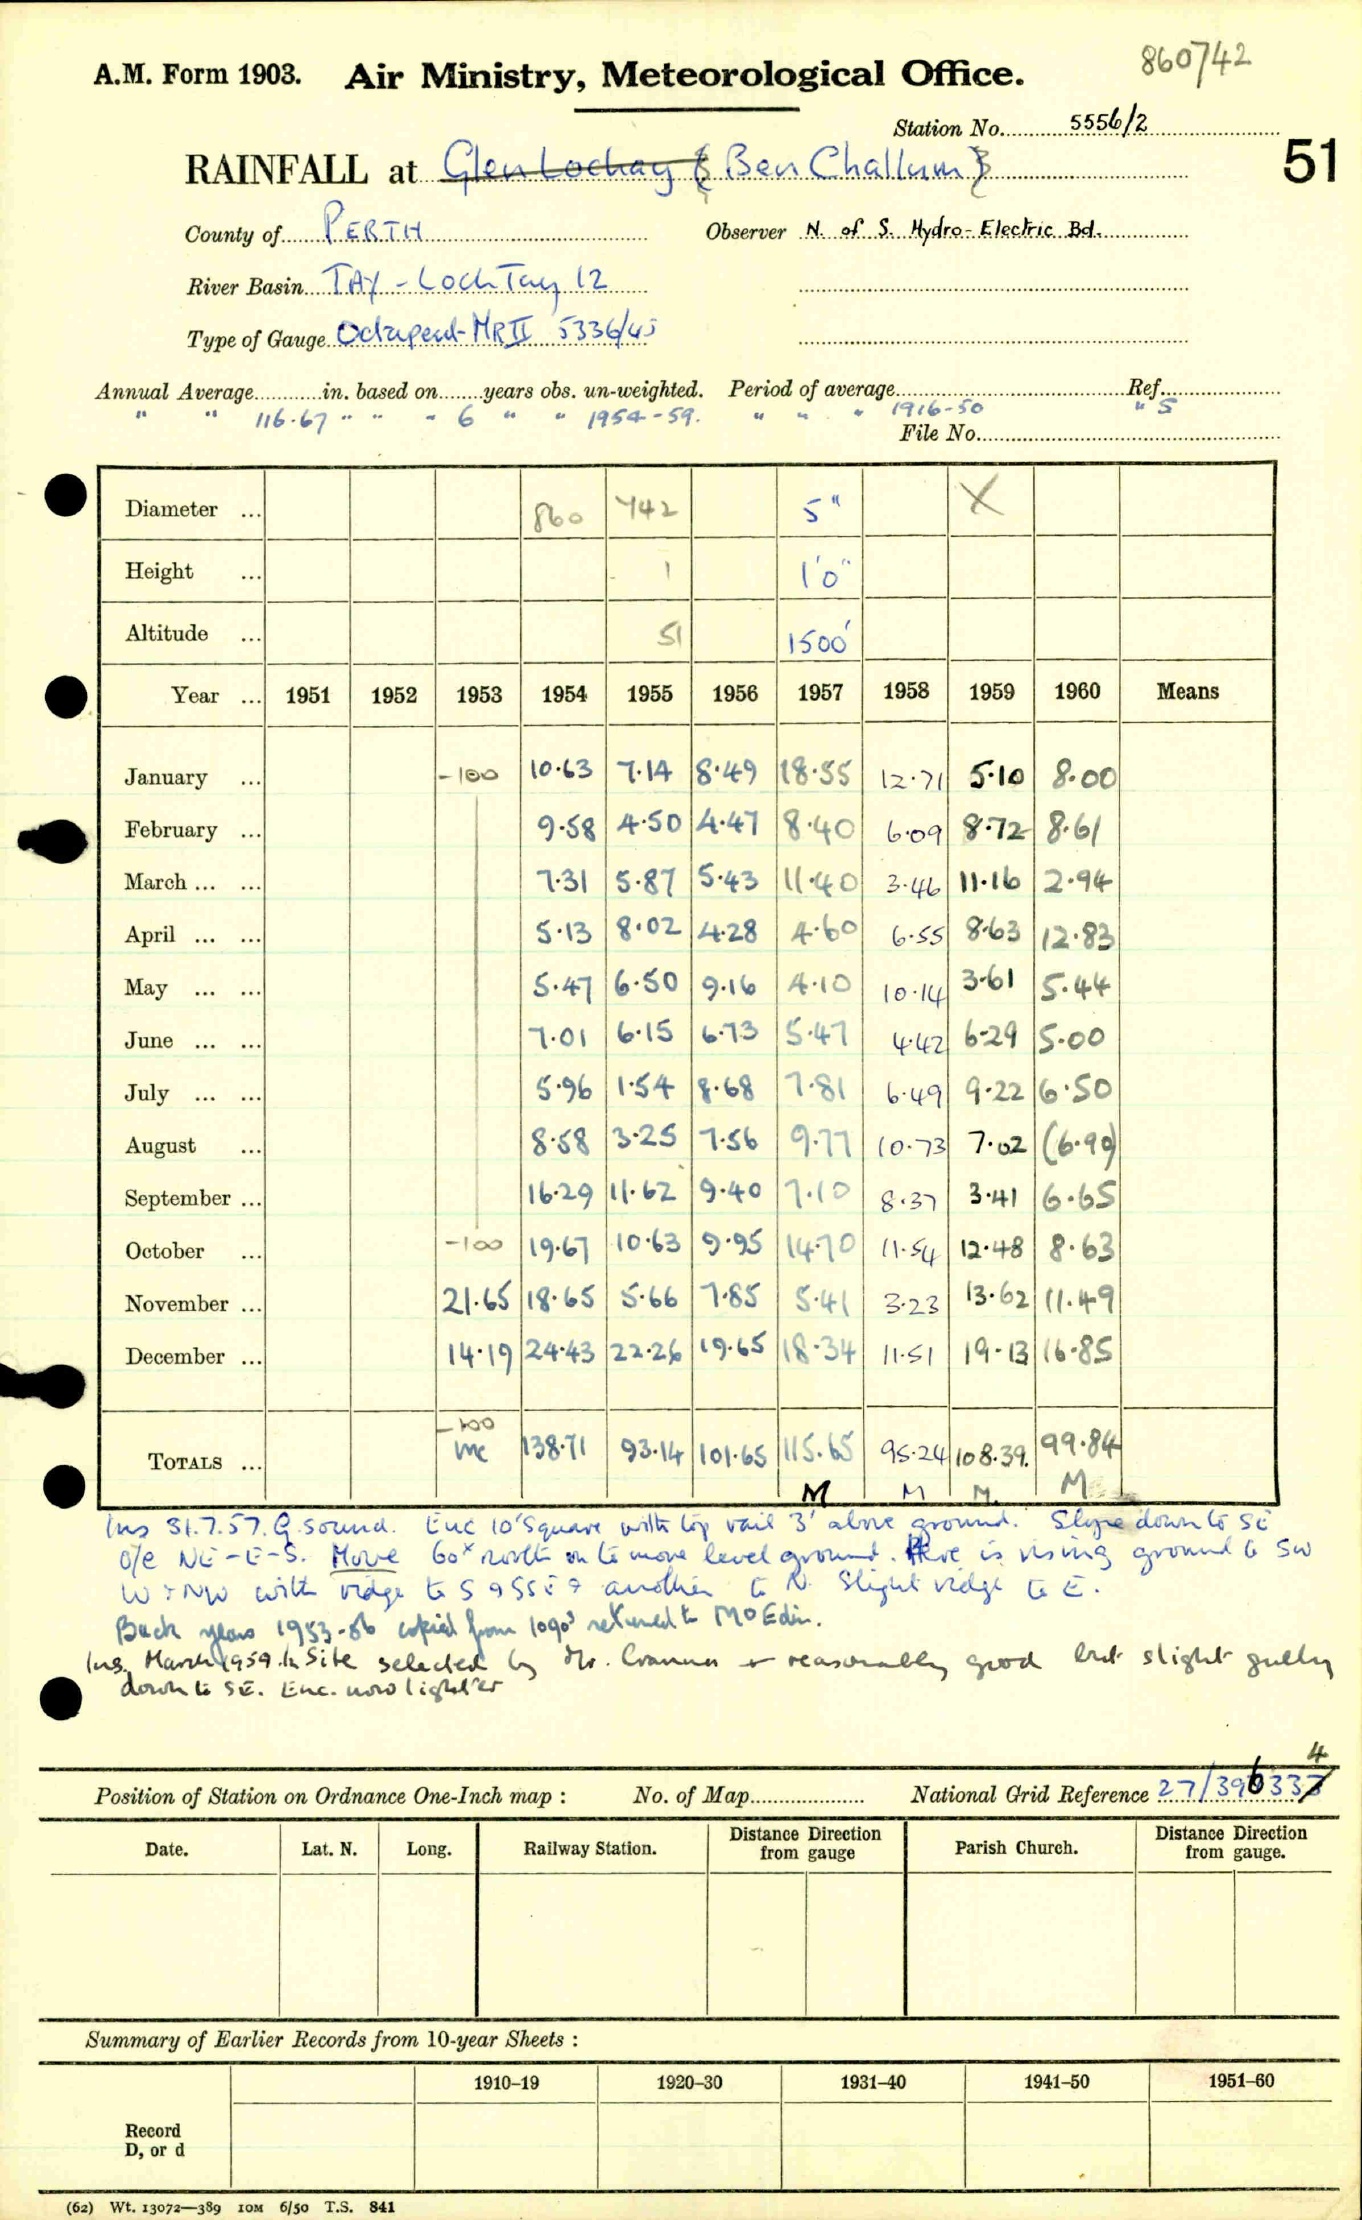 860742
A.M. Form 1903. Air Ministry, Meteorological Office.
Station No. 5556/2
51
RAINFALL at Glen Lochay (Ben Challum)
County of PERTH Observer N. of S. Hydro-Electric Bd.
River Basin TAY - Loch Tay 12
Type of Gauge Octapent MR II 5336/45
Annual Average in. based on years obs. un-weighted. Period of average Ref.
" " 116.67 " " " 6 " " 1954-59. " " " 1916-50 " S
File No.
Diameter ... 860 742 5" X
Height ... 1 1'0"
Altitude ... 51 1500'
Year ... 1951 1952 1953 1954 1955 1956 1957 1958 1959 1960 Means
January ... -100 10.63 7.14 8.49 18.55 12.71 5.10 8.00
February ... 9.58 4.50 4.47 8.40 6.09 8.72 8.61
March ... ... 7.31 5.87 5.43 11.40 3.46 11.16 2.94
April ... ... 5.13 8.02 4.28 4.60 6.55 8.63 12.83
May ... ... 5.47 6.50 9.16 4.10 10.14 3.61 5.44
June ... ... 7.01 6.15 6.73 5.47 4.42 6.29 5.00
July ... ... 5.96 1.54 8.68 7.81 6.49 9.22 6.50
August ... 8.58 3.25 7.56 9.77 10.73 7.02 (6.90)
September ... 16.29 11.62 9.40 7.10 8.37 3.41 6.65
October ... -100 19.67 10.63 9.95 14.70 11.54 12.48 8.63
November ... 21.65 18.65 5.66 7.85 5.41 3.23 13.62 11.49
December ... 14.19 24.43 22.26 19.65 18.34 11.51 19.13 16.85
-100
TOTALS ... Inc 138.71 93.14 101.65 115.65 95.24 108.39. 99.84
M M M. M
Ins 31.7.57. G. sound. Enc 10' square with top rail 3' above ground. Slope down to SE
o/e NE-E-S. Move 60x north on to more level ground. There is rising ground to SW
W & NW with ridge to S & SSE & another to N. Slight ridge to E.
Back years 1953-56 copied from 1090s returned to MO Edin.
Ins. March 1959. Site selected by Mr. & reasonably good but slight gulley
down to SE. Enc. now lighter
Position of Station on Ordnance One-Inch map : No. of Map National Grid Reference 27/396334
Date. Lat. N. Long. Railway Station. Distance from Direction gauge Parish Church. Distance from Direction gauge.
Summary of Earlier Records from 10-year Sheets :
1910–19 1920–30 1931–40 1941–50 1951–60
Record
D, or d
(62) Wt. 13072—389 10M 6/50 T.S. 841